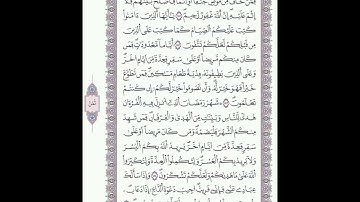 فَمَنْ خَافَ مِن مُّوصٍ جَنَفًا أَوْ إِثْمًا فَأَصْلَحَ بَيْنَهُمْ فَلَا
إِثْمَ عَلَيْهِ إِنَّ اللَّهَ غَفُورٌ رَّحِيمٌ يَٰأَيُّهَا الَّذِينَ ءَامَنُوا
كُتِبَ عَلَيْكُمُ الصِّيَامُ كَمَا كُتِبَ عَلَى الَّذِينَ
مِن قَبْلِكُمْ لَعَلَّكُمْ تَتَّقُونَ أَيَّامًا مَّعْدُودَٰتٍ فَمَن
كَانَ مِنكُم مَّرِيضًا أَوْ عَلَىٰ سَفَرٍ فَعِدَّةٌ مِّنْ أَيَّامٍ أُخَرَ
وَعَلَى الَّذِينَ يُطِيقُونَهُ فِدْيَةٌ طَعَامُ مِسْكِينٍ فَمَن تَطَوَّعَ
خَيْرًا فَهُوَ خَيْرٌ لَّهُ وَأَن تَصُومُوا خَيْرٌ لَّكُمْ إِن كُنتُمْ
تَعْلَمُونَ شَهْرُ رَمَضَانَ الَّذِي أُنزِلَ فِيهِ الْقُرْءَانُ
هُدًى لِّلنَّاسِ وَبَيِّنَٰتٍ مِّنَ الْهُدَىٰ وَالْفُرْقَانِ فَمَن شَهِدَ
مِنكُمُ الشَّهْرَ فَلْيَصُمْهُ وَمَن كَانَ مَرِيضًا أَوْ عَلَىٰ سَفَرٍ
فَعِدَّةٌ مِّنْ أَيَّامٍ أُخَرَ يُرِيدُ اللَّهُ بِكُمُ الْيُسْرَ
وَلَا يُرِيدُ بِكُمُ الْعُسْرَ وَلِتُكْمِلُوا الْعِدَّةَ وَلِتُكَبِّرُوا
اللَّهَ عَلَىٰ مَا هَدَىٰكُمْ وَلَعَلَّكُمْ تَشْكُرُونَ وَإِذَا سَأَلَكَ
عِبَادِي عَنِّي فَإِنِّي قَرِيبٌ أُجِيبُ دَعْوَةَ الدَّاعِ إِذَا دَعَانِ
ثمن